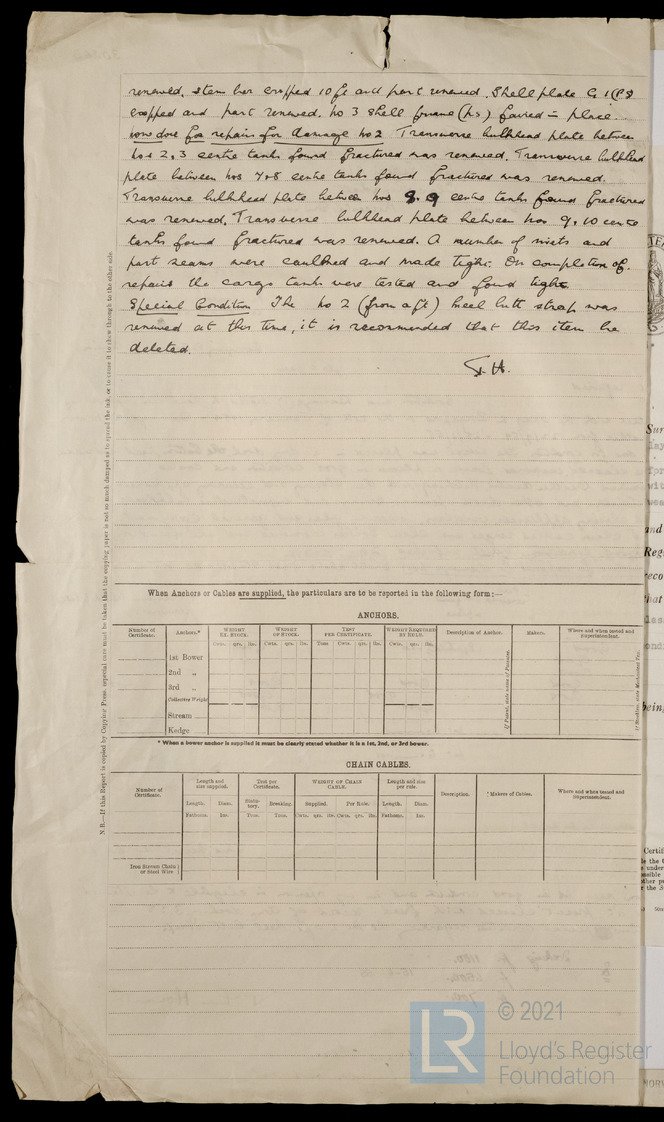 renewed, stem bar cropped 10 ft and part renewed. Shell plate G 1 (P.S
cropped and part renewed. No 3 shell frame (P.S) faired in place.
now done for repairs for damage No 2 Transverse bulkhead plate between
Nos 2, 3 centre tanks found fractured was renewed. Transverse bulkhead
plate between Nos 7 & 8 centre tanks found fractured was renewed.
Transverse bulkhead plate between Nos 8. 9 centre tanks found fractured
was renewed. Transverse bulkhead plate between Nos 9. 10 centre
tanks found fractured was renewed. A number of rivets and
part seams were caulked and made tight. On completion of
repairs the cargo tanks were tested and found tight.
Special Condition The No 2 (from aft) keel butt strap was
renewed at this time, it is recommended that this item be
deleted.
N.B.—If this Report is copied by Copying Press, especial care must be taken that the copying paper is not so much damped as to spread the ink, or to cause it to show through to the other side.
When Anchors or Cables are supplied, the particulars are to be reported in the following form:—
ANCHORS.
Number of Certificate. Anchors.* WEIGHT EX. STOCK. WEIGHT OF STOCK. TEST PER CERTIFICATE. WEIGHT REQUIRED BY RULE. Description of Anchor. Makers. Where and when tested and Superintendent.
Cwts. qrs. lbs. Cwts. qrs. lbs. Tons Cwts. qrs. lbs. Cwts. qrs. lbs.
1st Bower
2nd „
3rd „
Collective Weight
Stream
Kedge
If Forged, state name of Patentee.
* When a bower anchor is supplied it must be clearly stated whether it is a 1st, 2nd, or 3rd bower.
CHAIN CABLES.
Number of Certificate. Length and size supplied. Test per Certificate. WEIGHT OF CHAIN CABLE. Length and size per rule. Description. Makers of Cables. Where and when tested and Superintendent.
Length. Diam. Statutory. Breaking. Supplied. Per Rule. Length. Diam.
Fathoms. Ins. Tons. Tons. Cwts. qrs. lbs. Cwts. qrs. lbs. Fathoms. Ins.
Iron Stream Chain or Steel Wire
LR
© 2021
Lloyd's Register
Foundation